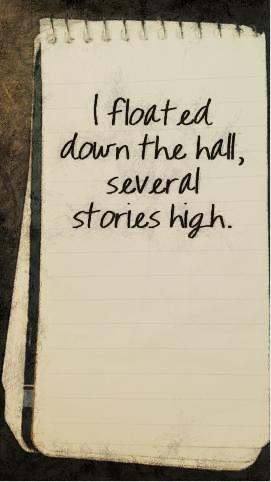 I floated
down the hall,
several
stories high.